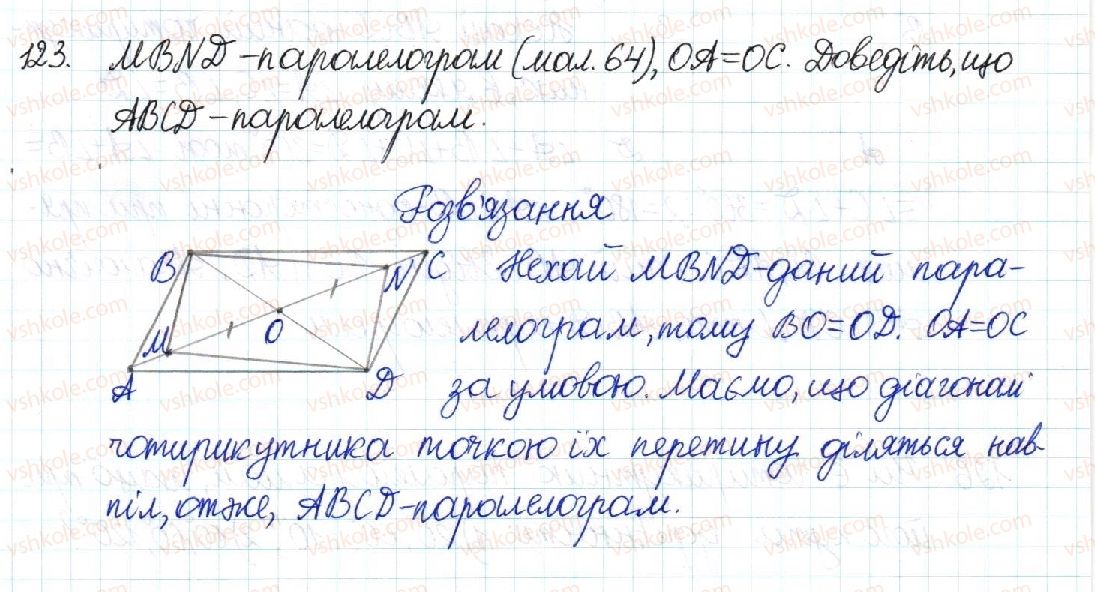 123. MBND-паралелограм (мал. 64), OA=OC. Доведіть, що
ABCD-паралелограм.
Розв'язання
B C N O M A D
Нехай MBND-даний пара-
лелограм, тому BO=OD. OA=OC
за умовою. Маємо, що діагоналі
чотирикутника точкою їх перетину діляться нав-
піл, отже, ABCD-паралелограм.
vshkole.com